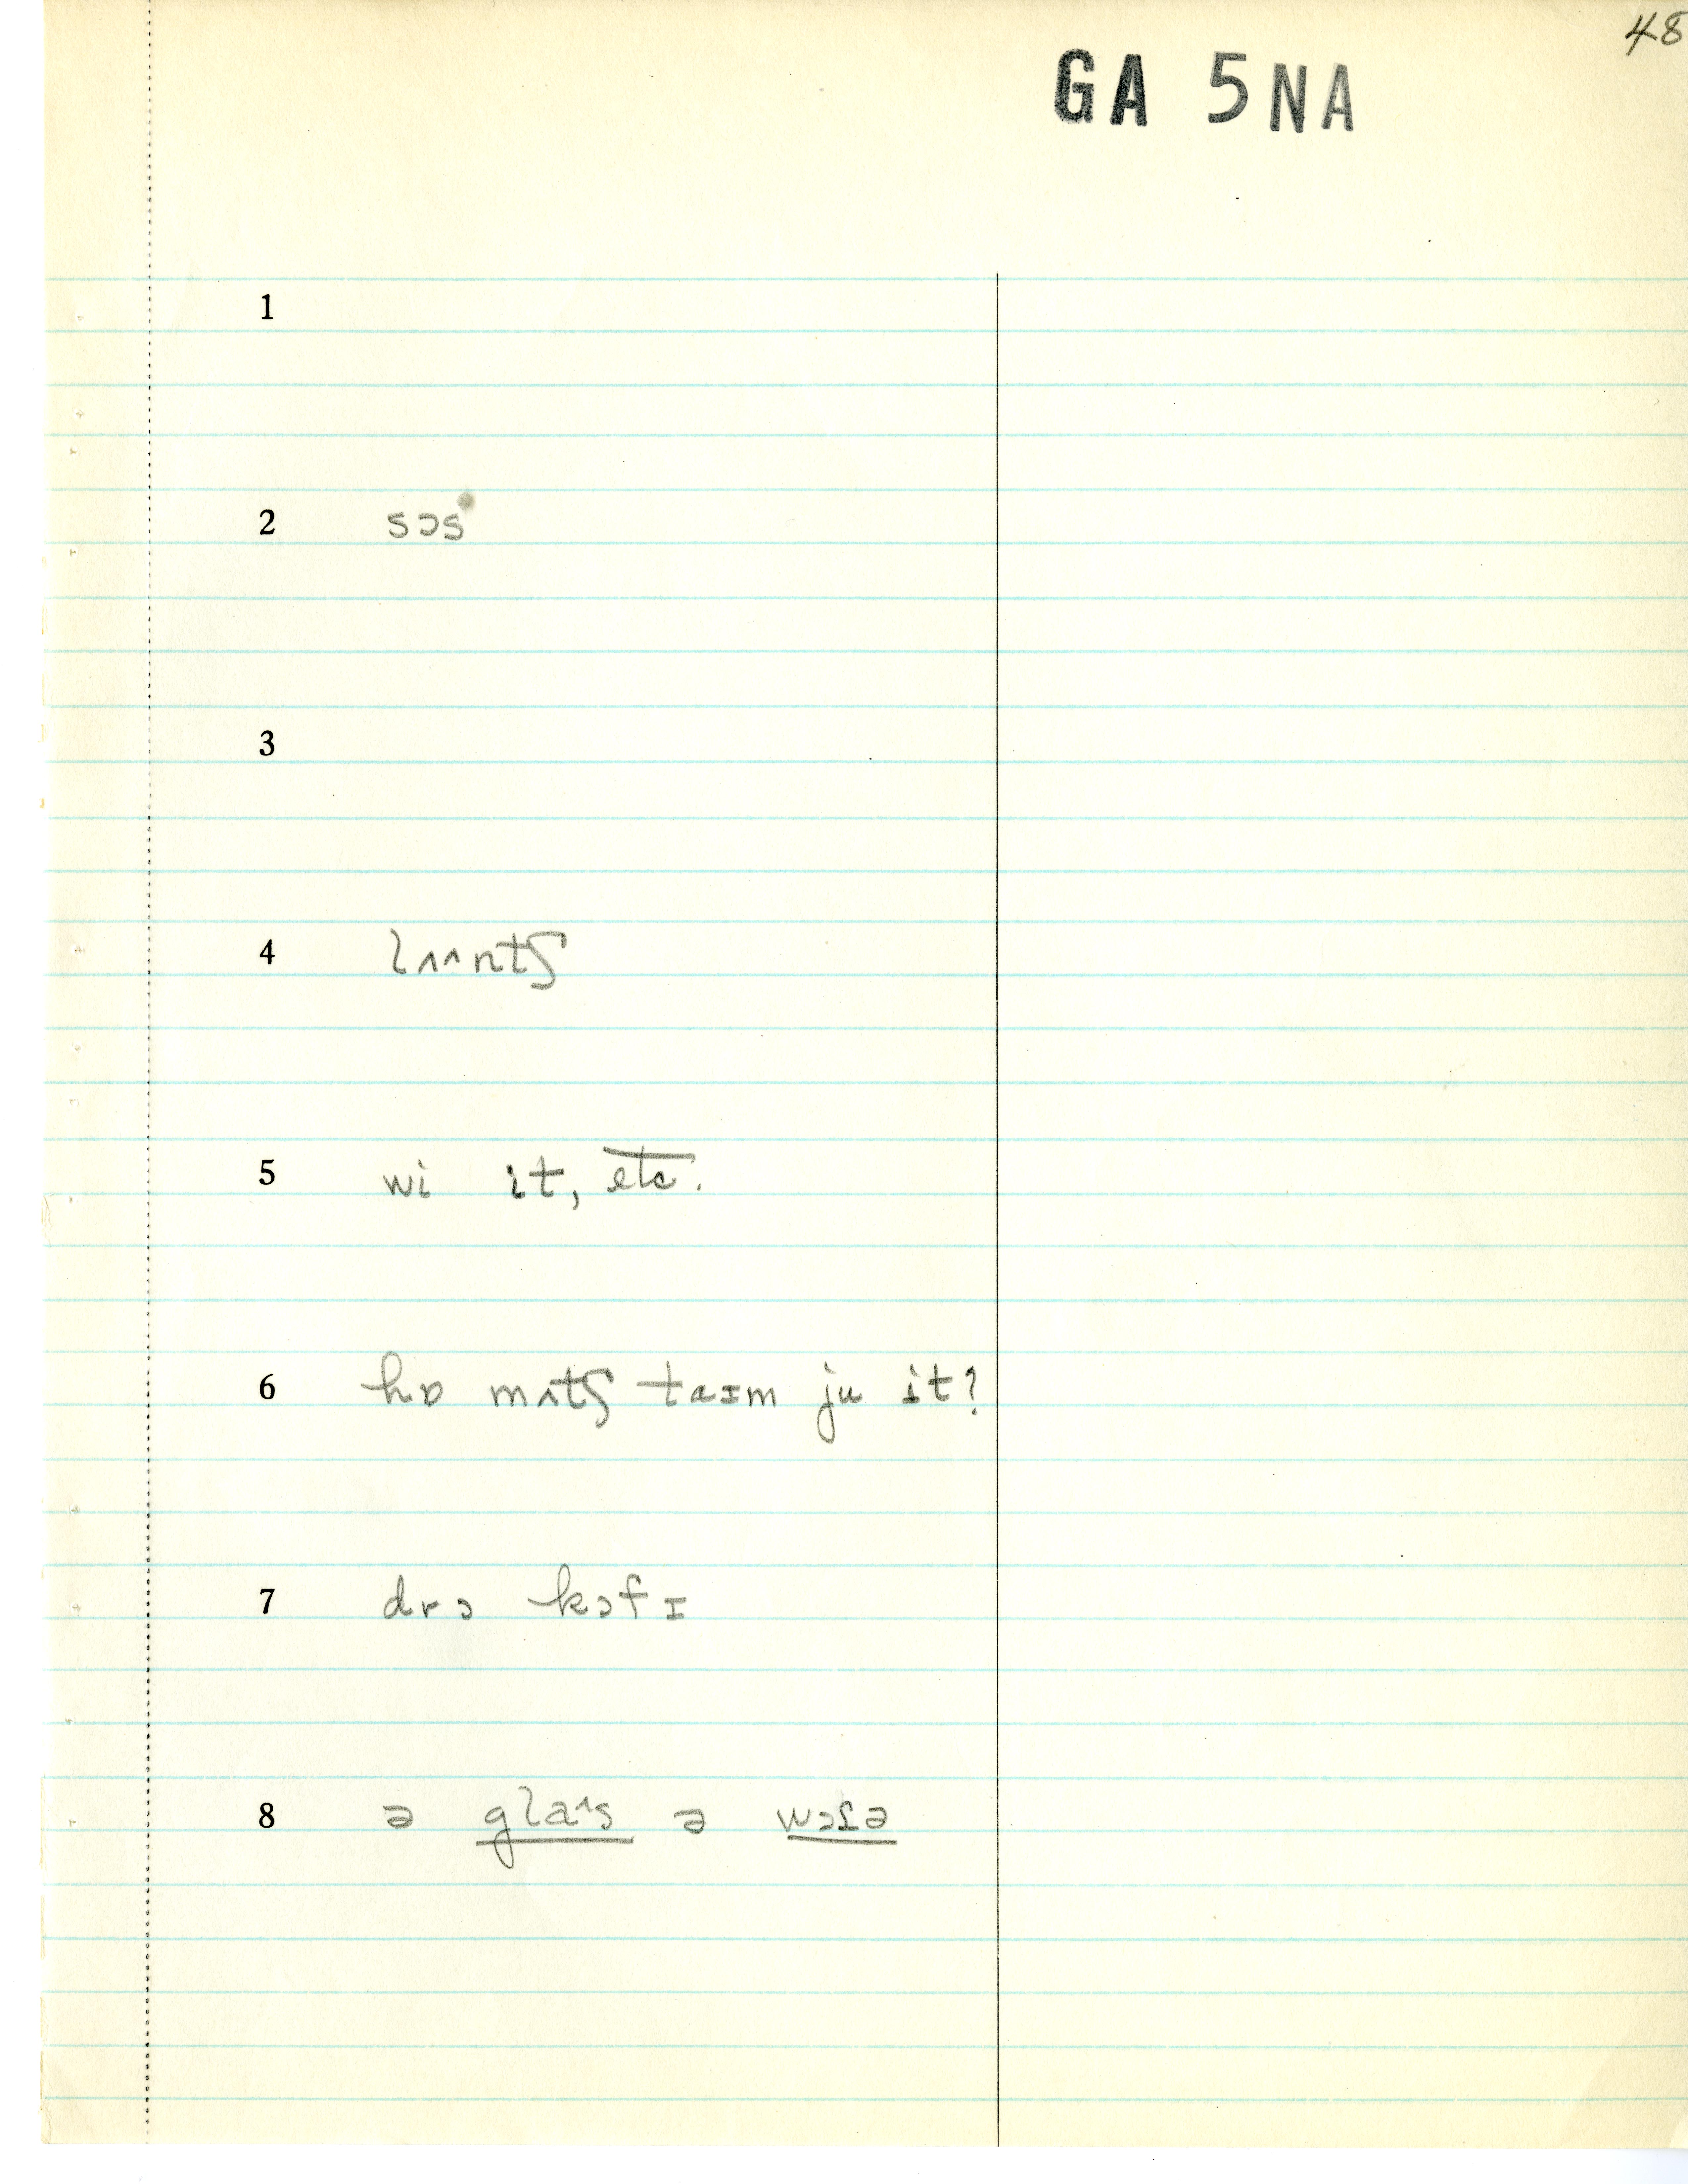 48
GA 5NA
1
2 sɔs
3
4 lʌ^ntʃ
5 wi it, etc.
6 hɒ mʌtʃ taɪm ju it?
7 drɔ kɔfɪ
8 ə gla^s ə wɔɾə